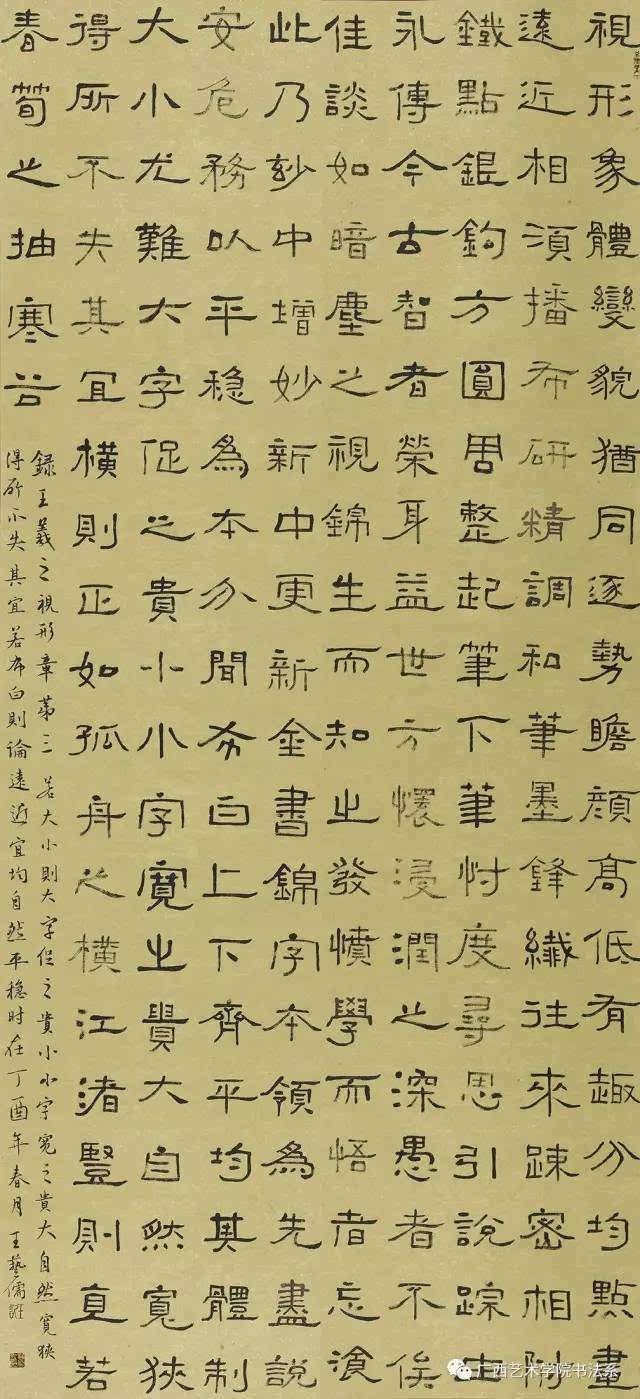 視形象體變貌猶同逐勢瞻顔高低有趣分均點畫
遠近相須播布研精調和筆墨鋒纖往來疎密相附
鐵點銀鉤方圓周整起筆下筆忖度尋思引説蹤由
永傳今古智者榮身益世方懷浸潤之深愚者不俟
佳談如暗塵之視錦生而知之發憤學而悟者忘飡
此乃玅中增妙新中更新金書錦字本領為先盡説
安危務以平穏為本分間布白上下齊平均其體制
大小尤難大字促之貴小小字寛之貴大自然寛狹
得所不失其宜橫則正如孤舟之橫江渚豎則直若
春荀之抽寒谷
録王羲之視形章第三若大小則大字促之貴小小字寛之貴大自然寛狹
得所不失其宜若布白則論遠近宜均自然平穏時在丁酉年春月王藝儒
广西艺术学院书法系